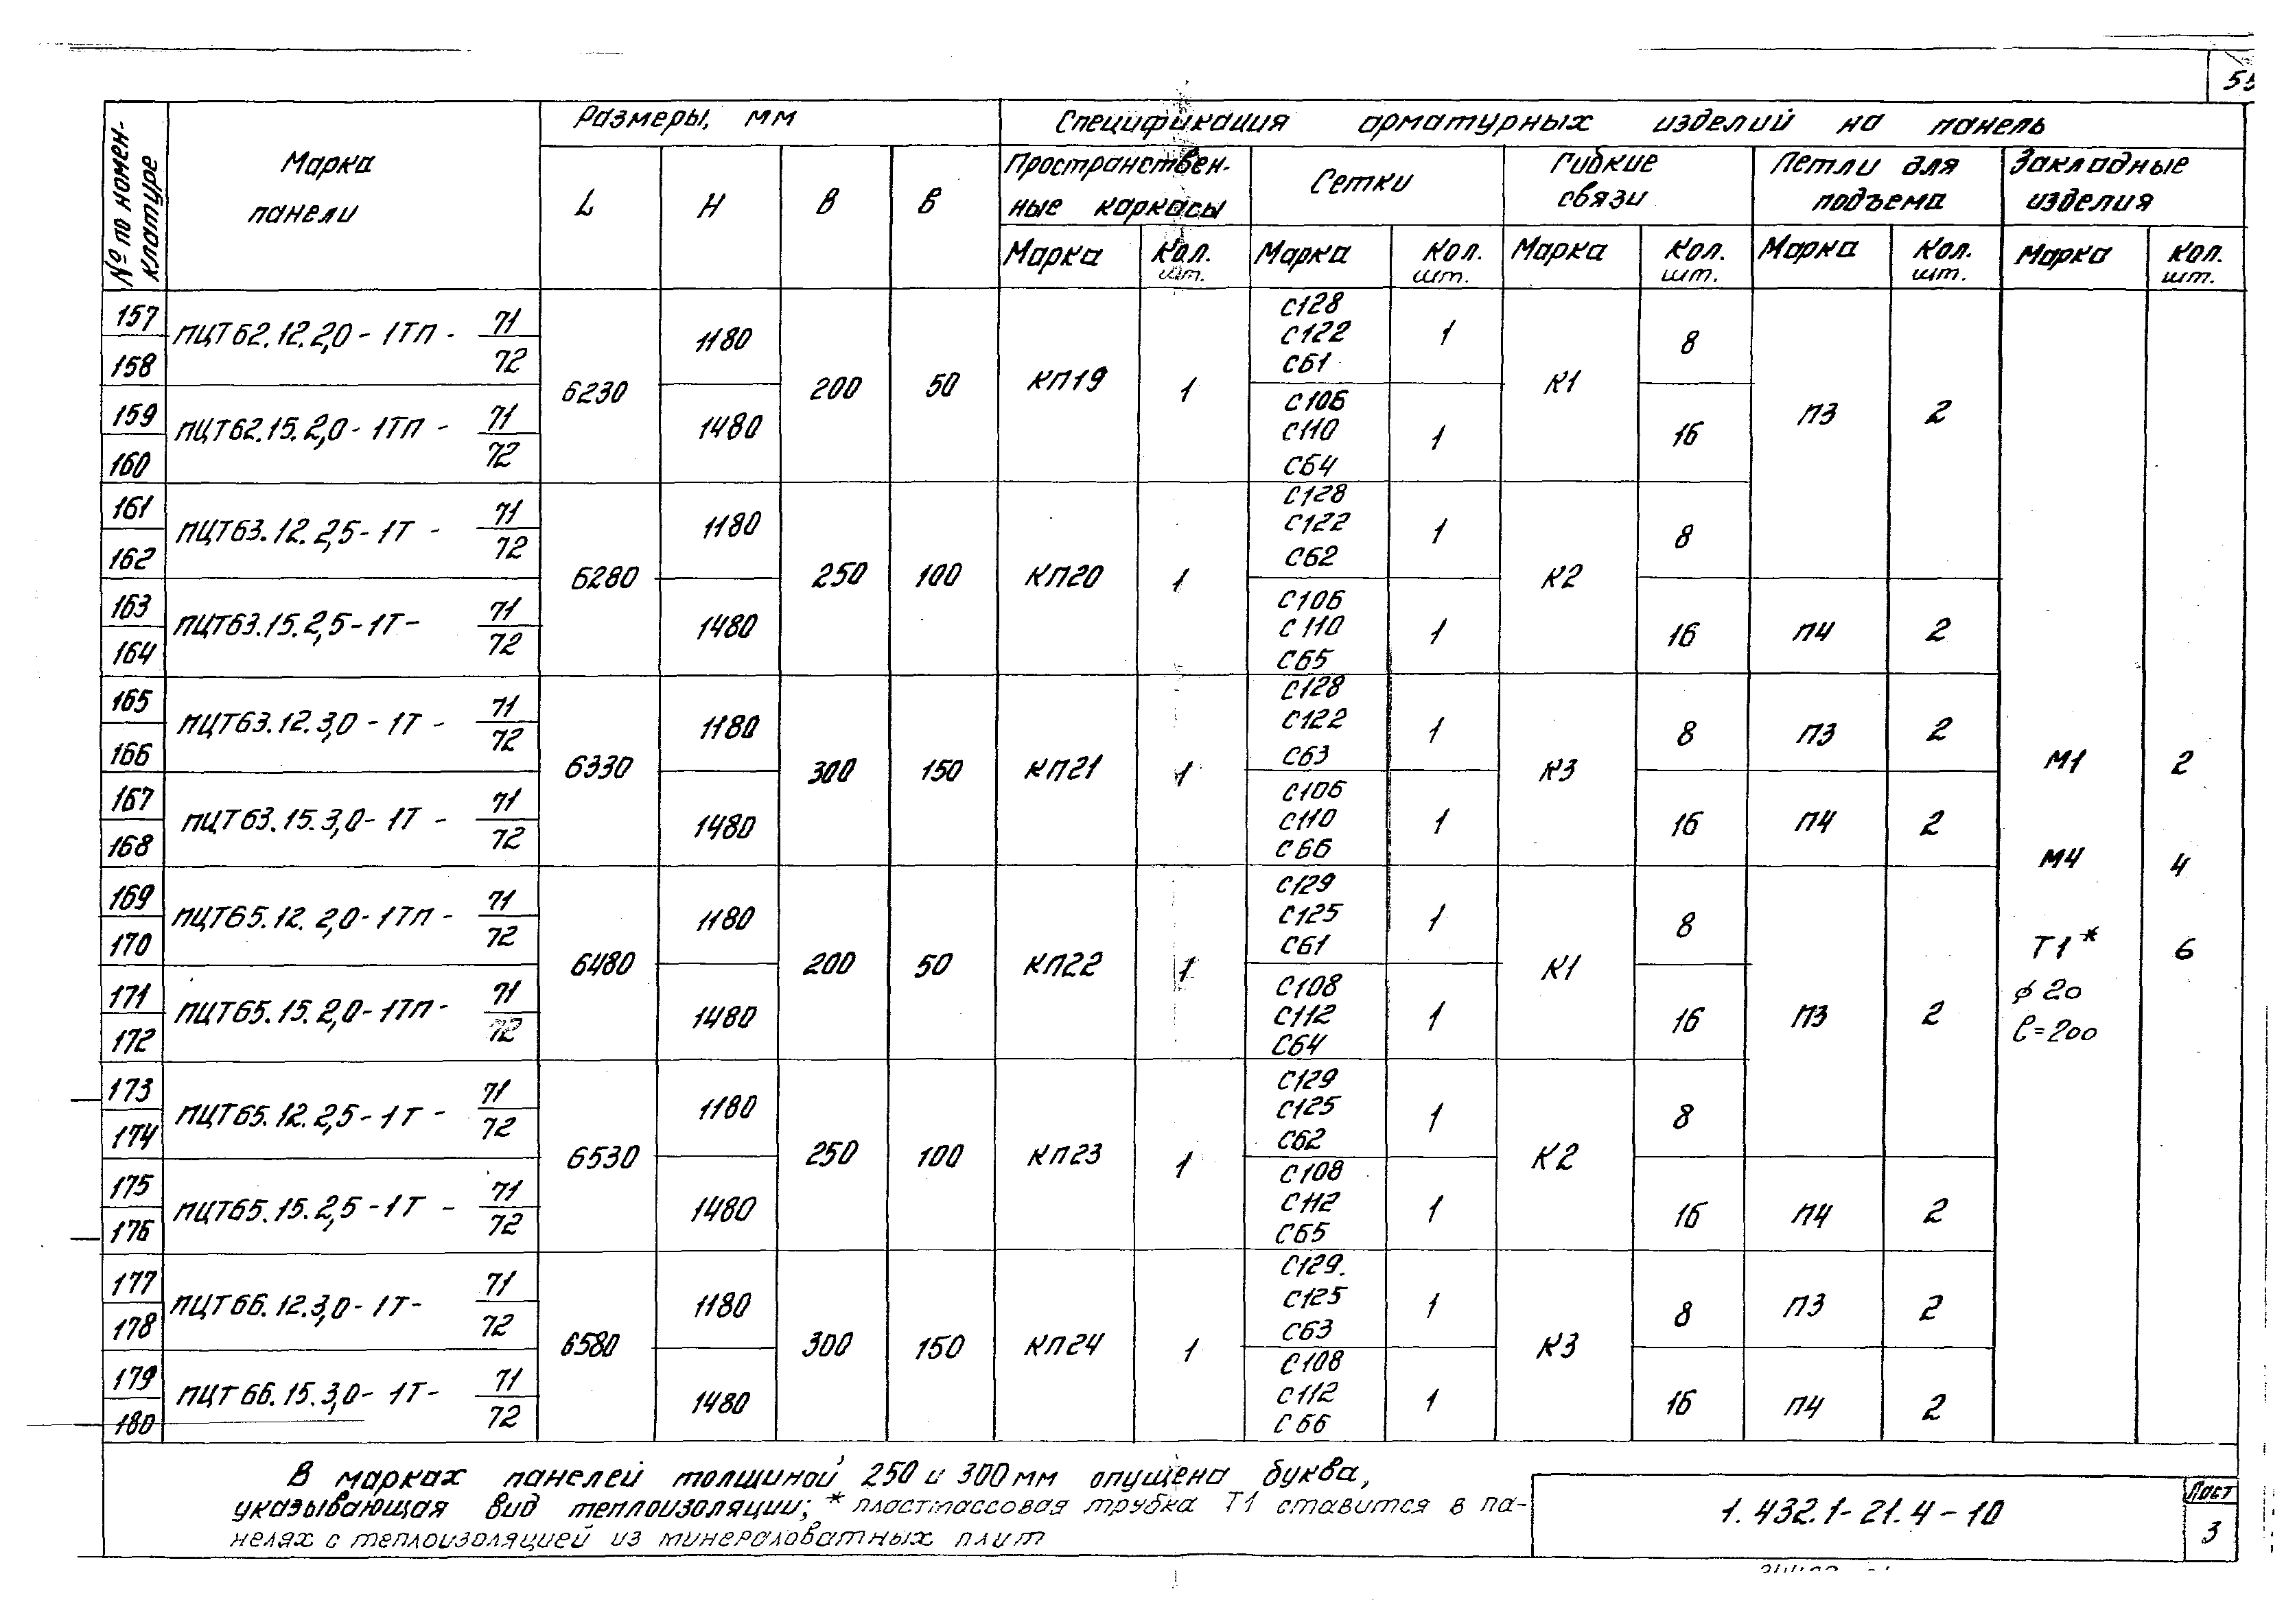 55
№ по номен-
клатуре
Марка
панели
Размеры, мм
Спецификация арматурных изделий на панель
L
H
В
в
Пространствен-
ные каркасы
Сетки
Гибкие
связи
Петли для
подъема
Закладные
изделия
Марка Кол. шт. Марка Кол. шт. Марка Кол. шт. Марка Кол. шт. Марка Кол. шт.
157 ПЦТ62.12.2,0-1ТП- 71
158 72
6230 1180 200 50 КП19 1
С128
С122
С61
1 К1 8 П3 2
159 ПЦТ62.15.2,0-1ТП- 71
160 72
1480
С106
С110
С64
1 16
161 ПЦТ63.12.2,5-1Т- 71
162 72
6280 1180 250 100 КП20 1
С128
С122
С62
1 К2 8
163 ПЦТ63.15.2,5-1Т- 71
164 72
1480
С106
С110
С65
1 16 П4 2
165 ПЦТ63.12.3,0-1Т- 71
166 72
6330 1180 300 150 КП21 1
С128
С122
С63
1 К3 8 П3 2
М1 2
167 ПЦТ63.15.3,0-1Т- 71
168 72
1480
С106
С110
С66
1 16 П4 2
М4 4
169 ПЦТ65.12.2,0-1ТП- 71
170 72
6480 1180 200 50 КП22 1
С129
С125
С61
1 К1 8
Т1* 6
ϕ20
ℓ=200
171 ПЦТ65.15.2,0-1ТП- 71
172 72
1480
С108
С112
С64
1 16 П3 2
173 ПЦТ65.12.2,5-1Т- 71
174 72
6530 1180 250 100 КП23 1
С129
С125
С62
1 К2 8
175 ПЦТ65.15.2,5-1Т- 71
176 72
1480
С108
С112
С65
1 16 П4 2
177 ПЦТ66.12.3,0-1Т- 71
178 72
6580 1180 300 150 КП24 1
С129.
С125
С63
1 К3 8 П3 2
179 ПЦТ66.15.3,0-1Т- 71
180 72
1480
С108
С112
С66
1 16 П4 2
В марках панелей толщиной 250 и 300 мм опущена буква,
указывающая вид теплоизоляции; * пластмассовая трубка Т1 ставится в па-
нелях с теплоизоляцией из минераловатных плит
1.432.1-21.4-10
Лист
3